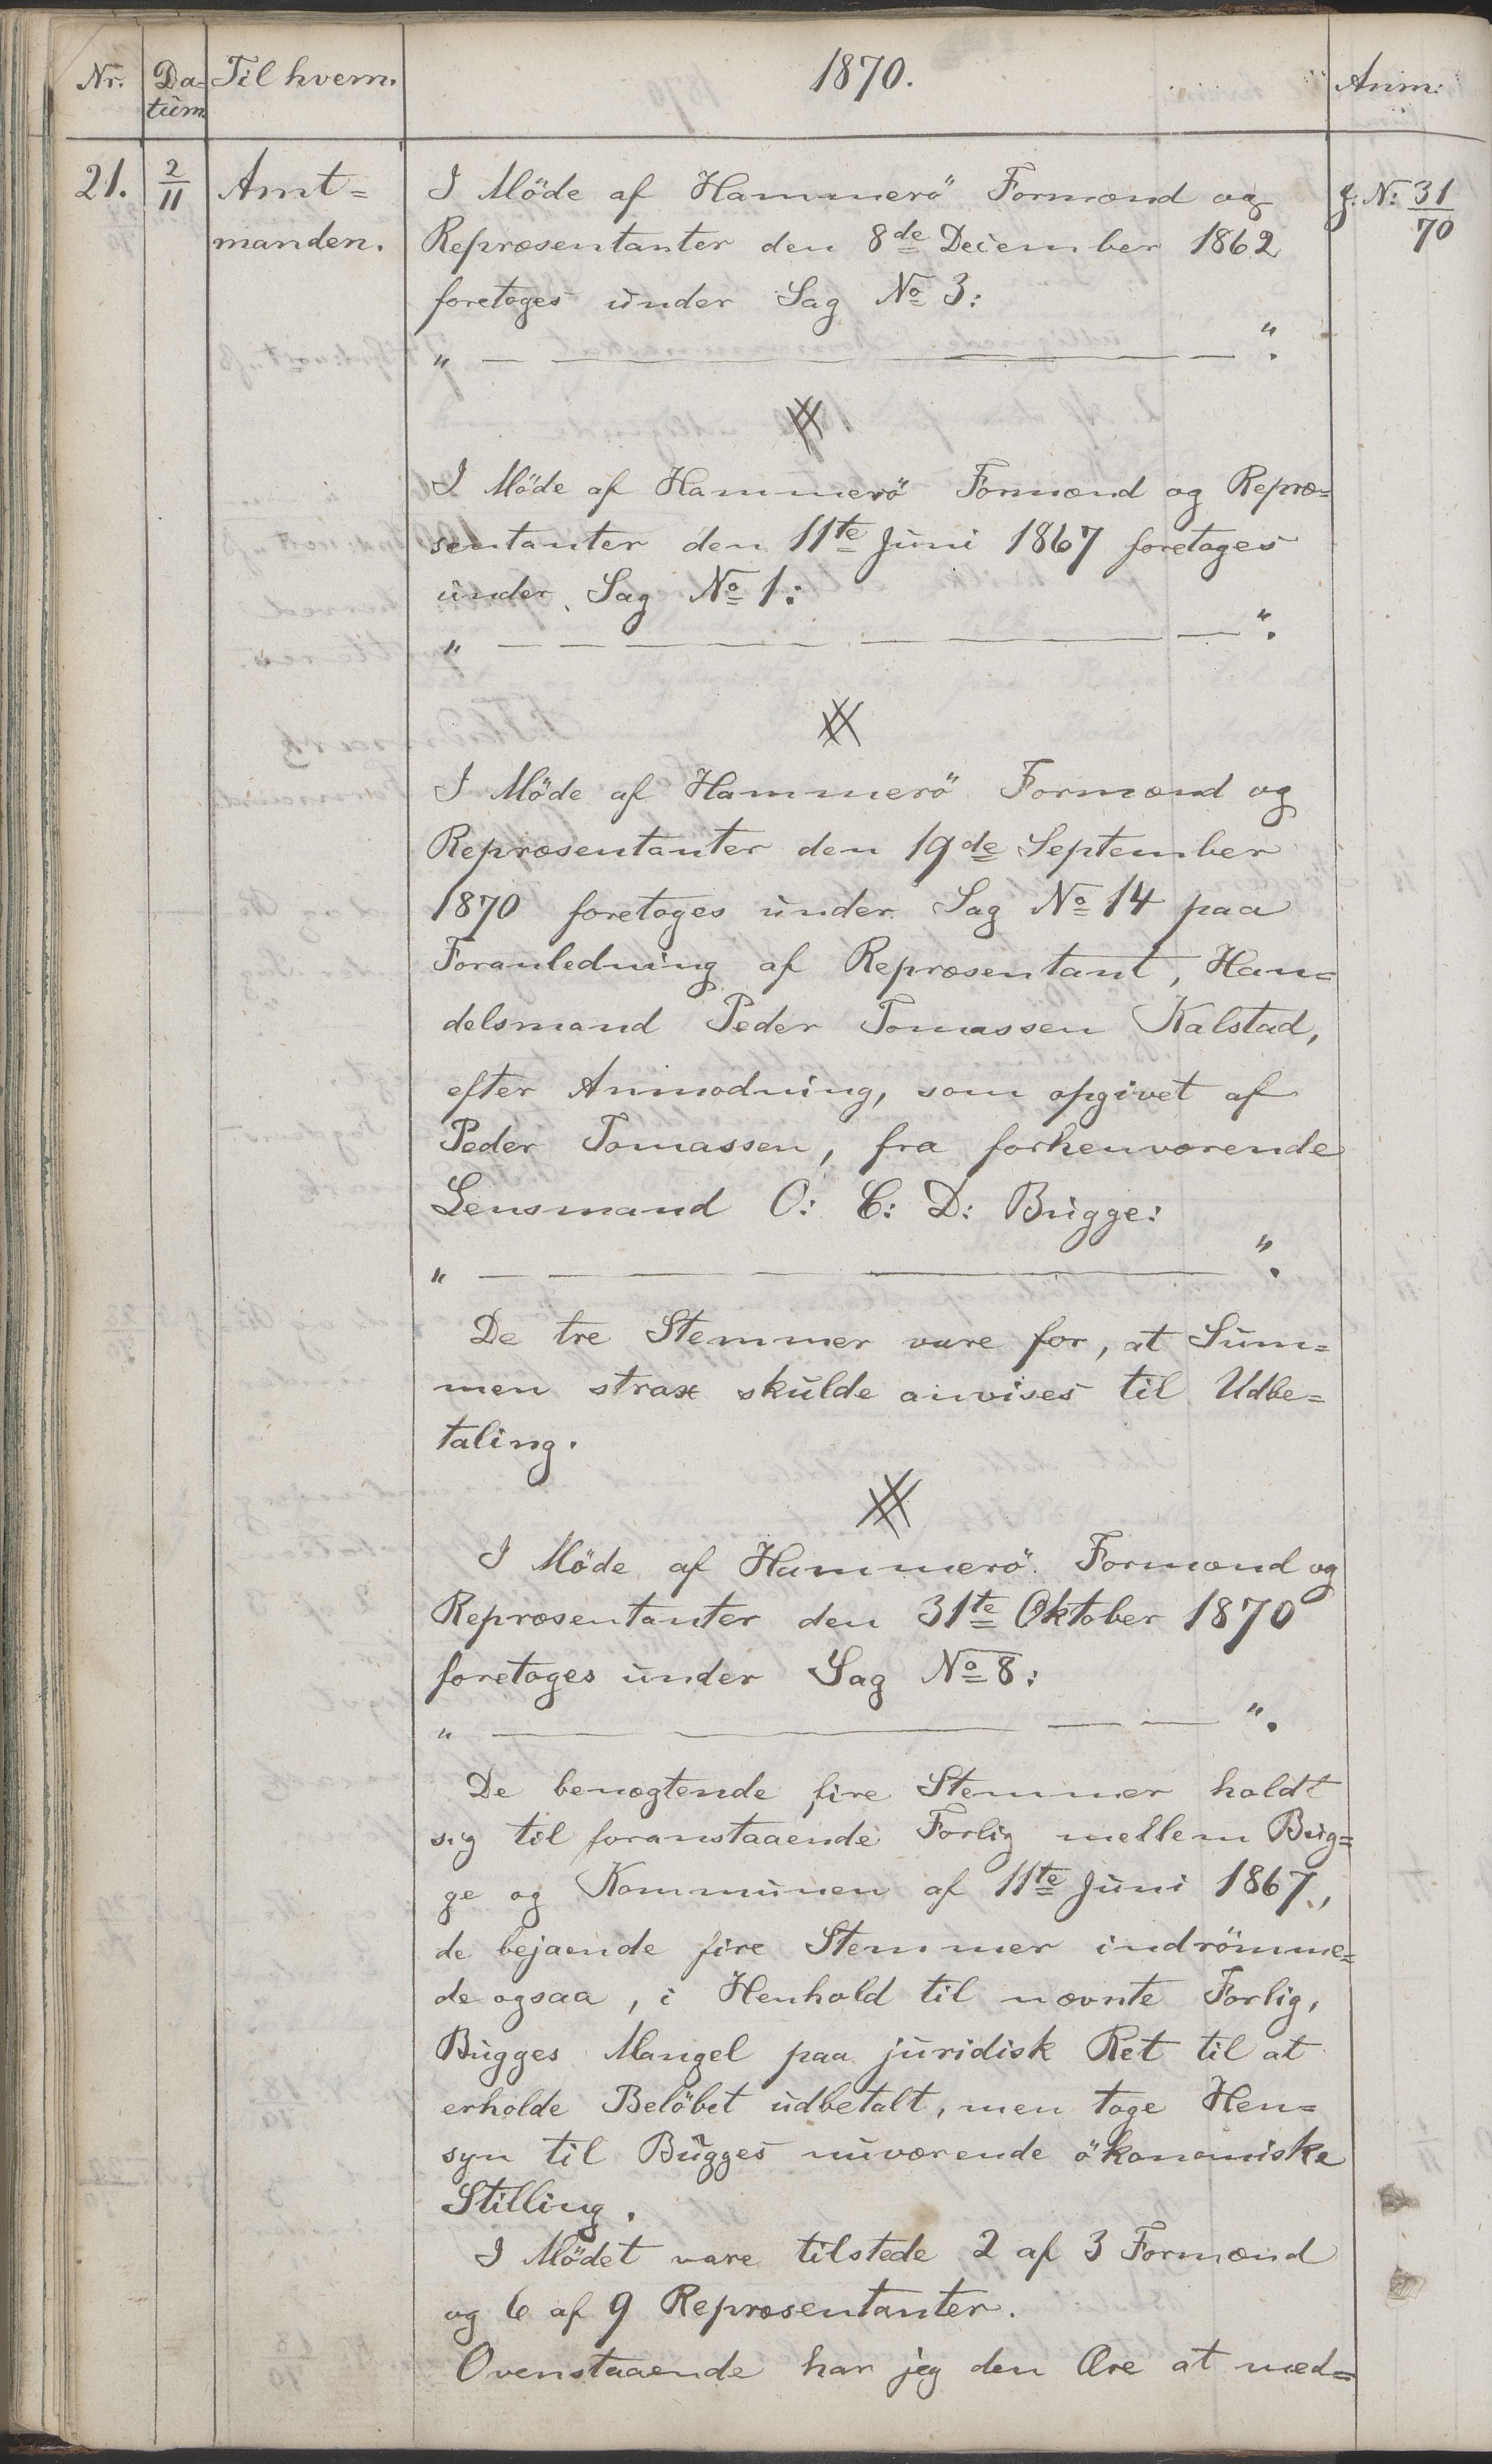 Nr. Da= Til hvem. 1870. Anm:
tum
21. 2/11 Amt= I Möde af Hammerö Formænd og J: N: 31/70
manden. Repræsentanter den 8de December 1862
foretoges under Sag No 3:
" — — — — — — ".
I Möde af Hammerö Formænd og Repræ=
sentanter den 11te Juni 1867 foretoges
under Sag No 1:
" — — — — — — — ".
I Möde af Hammerö Formænd og
Repræsentanter den 19de September
1870 foretoges under Sag No 14 paa
Foranledning af Repræsentant, Han=
delsmand Peder Tomassen Kalstad,
efter Anmodning, som opgivet af
Peder Tomassen, fra forhenværende
Lensmand O: C: D: Bugge:
" — — — — — ".
De tre Stemmer vare for, at Sum=
men strax skulde anvises til Udbe=
taling.
I Möde af Hammerö Formænd og
Repræsentanter den 31te Oktober 1870
foretoges under Sag No 8:
" — — — — ".
De benægtende fire Stemmer holdt
sig til foranstaaende Forlig mellem Bug=
ge og Kommunen af 11te Juni 1867,
de bejaende fire Stemmer indrömme=
de ogsaa, i Henhold til nævnte Forlig,
Bugges Mangel paa juridisk Ret til at
erholde Belöbet udbetalt, men toge Hen=
syn til Bugges nuværende ökonomiske
Stilling.
I Mödet vare tilstede 2 af 3 Formænd
og 6 af 9 Repræsentanter.
Ovenstaaende har jeg den Ære at med=